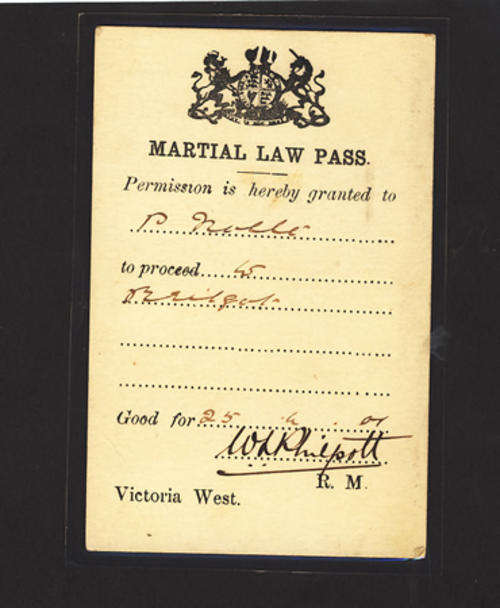 MARTIAL LAW PASS.
Permission is hereby granted to
P Nolli
to proceed to
Good for 25 . 01
W L Philpott
R. M.
Victoria West.